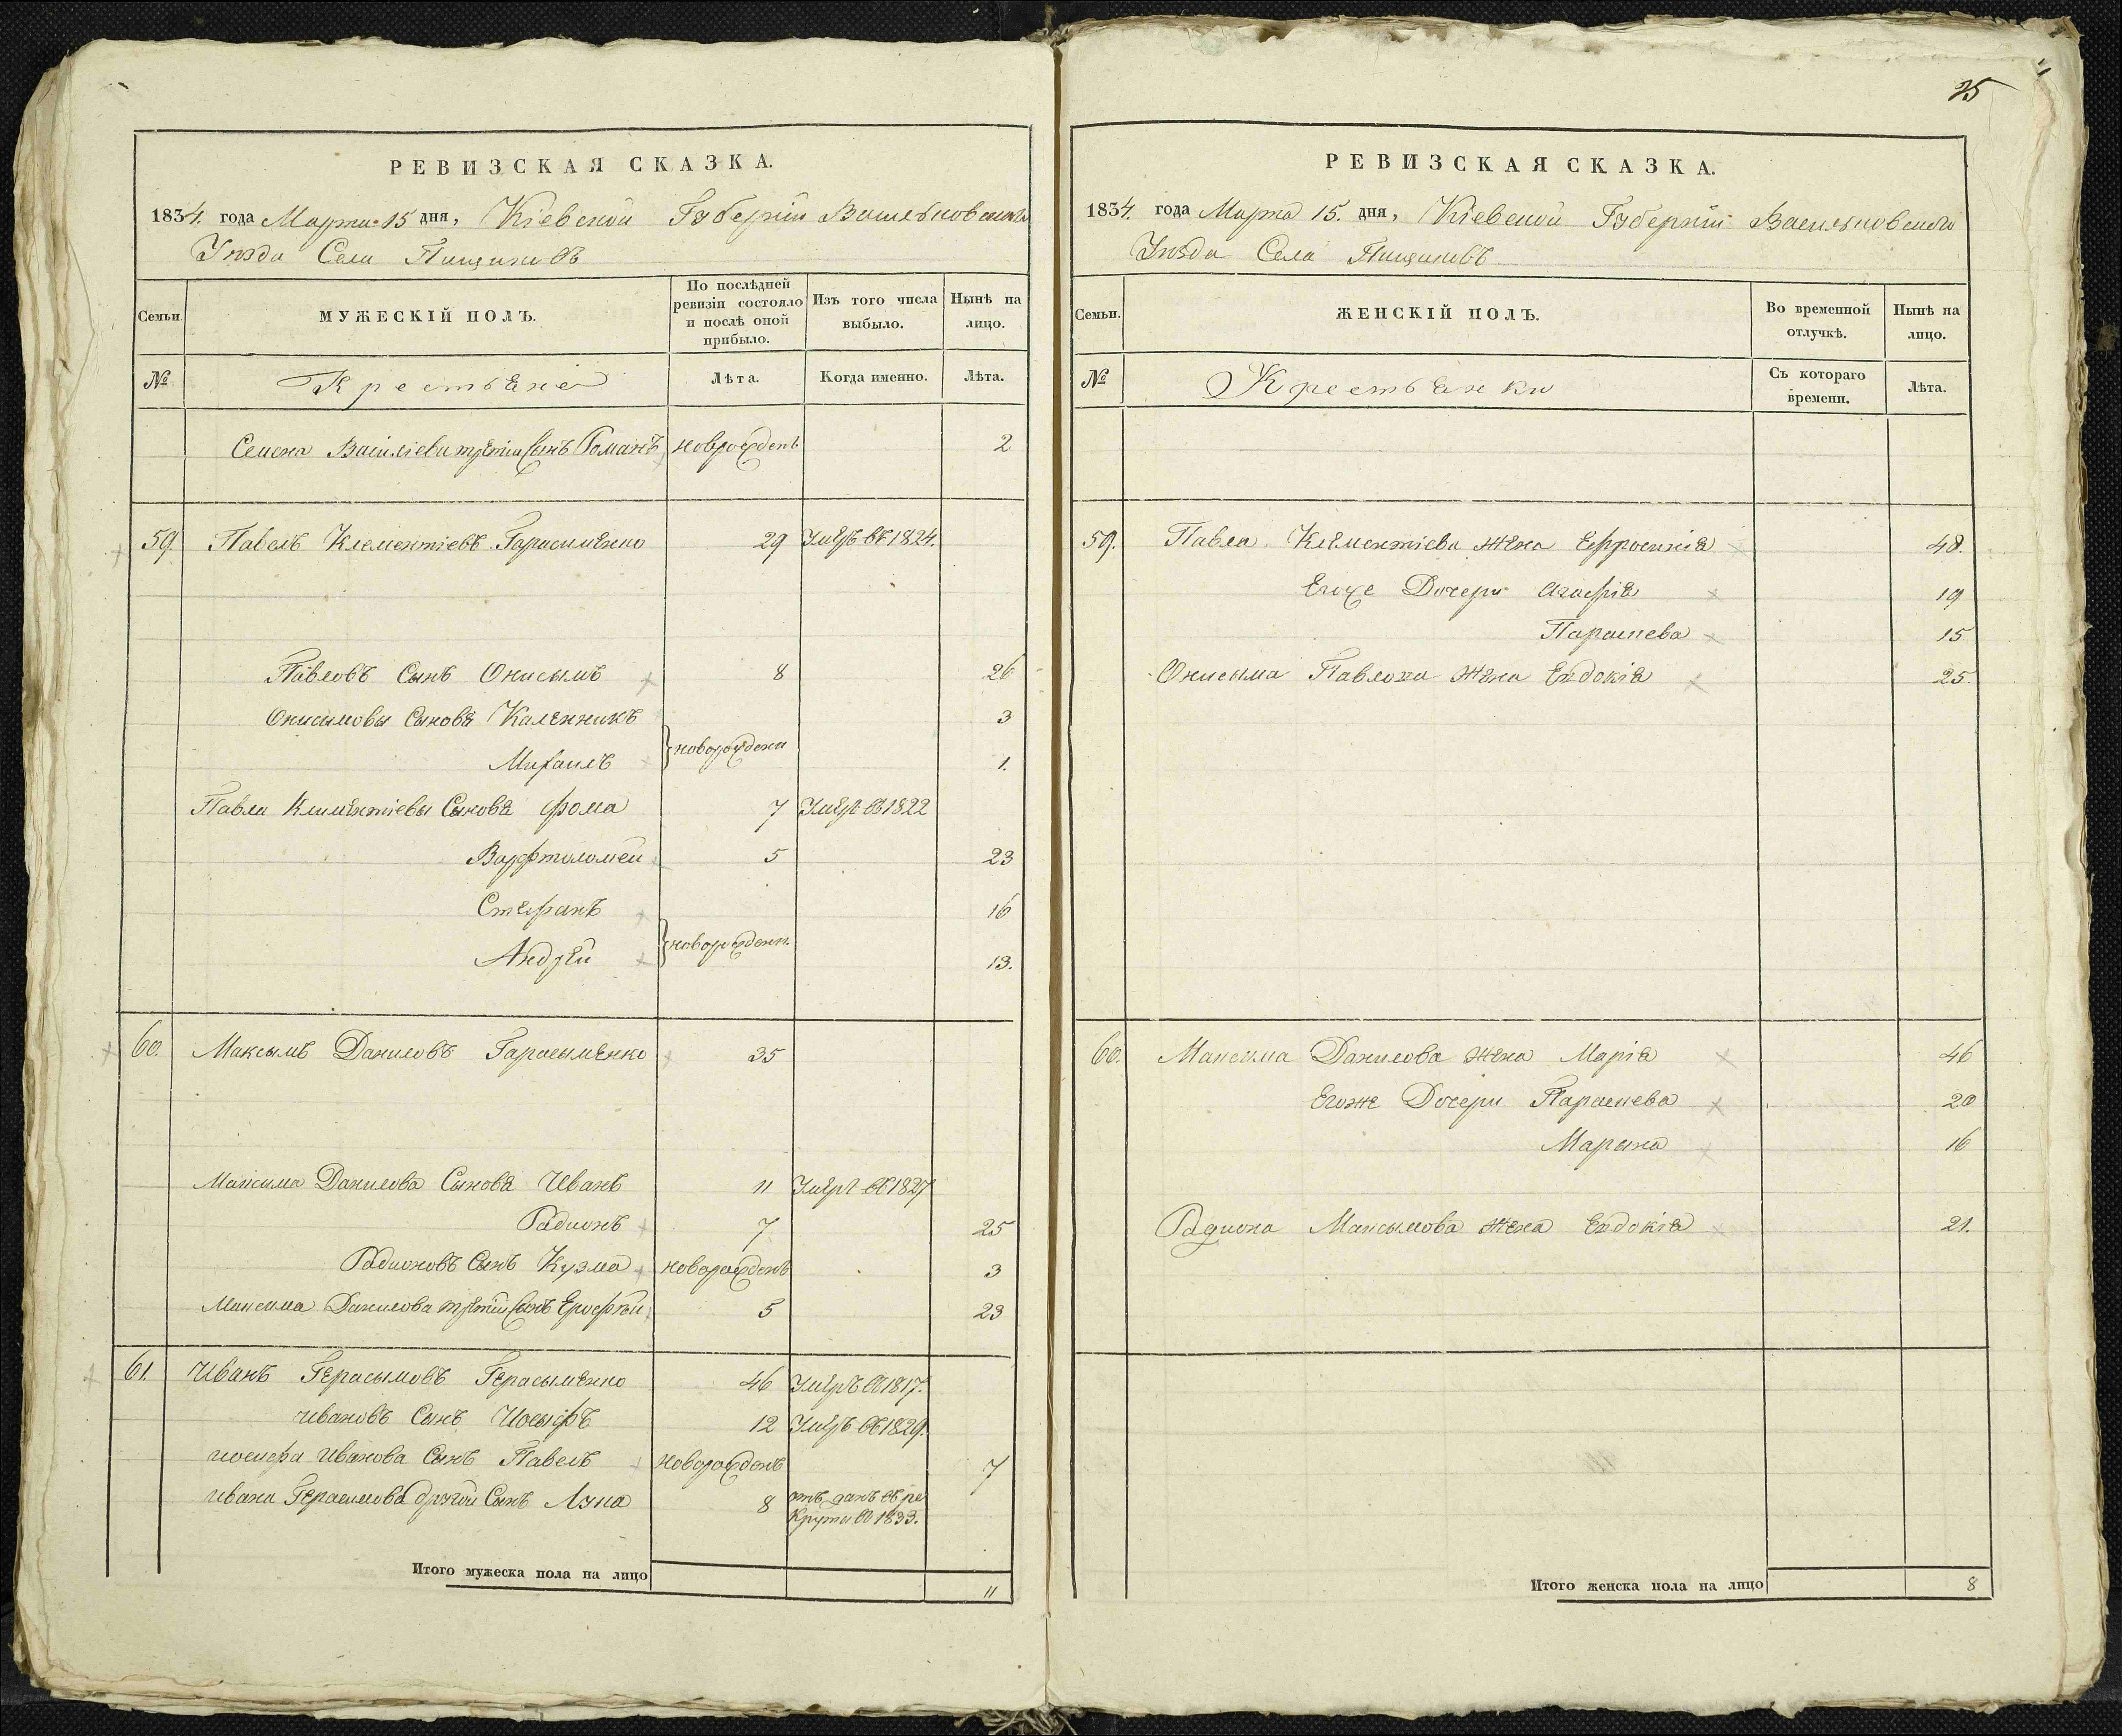 РЕВИЗСКАЯ СКАЗКА.
1834. года Марта 15 дня, Кіевской Губерніи Васильковскаго
Уѣзда Села Пищиковъ
Семьи.
МУЖЕСКІЙ ПОЛЪ.
По послѣдней ревизіи состояло и послѣ оной прибыло.
Изъ того числа выбыло.
Нынѣ на лицо.
№
Крестьяне
Лѣта.
Когда именно.
Лѣта.
Семена Василіева третій Сынъ Романъ новорожденъ 2
59. Павелъ Клементіевъ Гарасименко 29 Умеръ въ 1824.
Павловъ Сынъ Онисымъ 8 26
Онисимовы Сыновя Каленникъ 3
новорождени
Михаилъ 1.
Павла Климентіевы Сыновя Фома 7 Умеръ въ 1822
Варфтоломей 5 23
Стефанъ 16
новорождени.
Андрей 13.
60. Максымъ Даниловъ Гарасыменко 35
Максима Данилова Сыновя Иванъ 11 Умеръ въ 1827
Радионъ 7 25
Радионовъ Сынъ Кузма новорожденъ 3
Максима Данилова третій Сынъ Ерофѣй 5 23
61. Иванъ Герасымовъ Герасыменко 46 Умеръ въ 1817.
Ивановъ Сынъ Иосыфъ 12 Умеръ въ 1829.
иосифа Иванова Сынъ Павелъ новорожденъ 7
Ивана Герасимова другой Сынъ Лука 8 отъданъ въ ре
круты въ 1833.
Итого мужеска пола на лицо 11
25
РЕВИЗСКАЯ СКАЗКА.
1834. года Марта 15. дня, Кіевской Губерніи Васильковского
Уѣзда Села Пищиковъ
Семьи.
ЖЕНСКІЙ ПОЛЪ.
Во временной отлучкѣ.
Нынѣ на лицо.
№
Крестьянки
Съ котораго времени.
Лѣта.
59. Павла Клементіева жена Ефросинія 48.
Егоже Дочери Агафія 19
Параскева 15
Онисима Павлова жена Евдокія 25.
60. Максима Данилова жена Марія 46
Егоже Дочери Параскева 20
Марына 16
Радиона Максымова жена Евдокія 21.
Итого женска пола на лицо 8